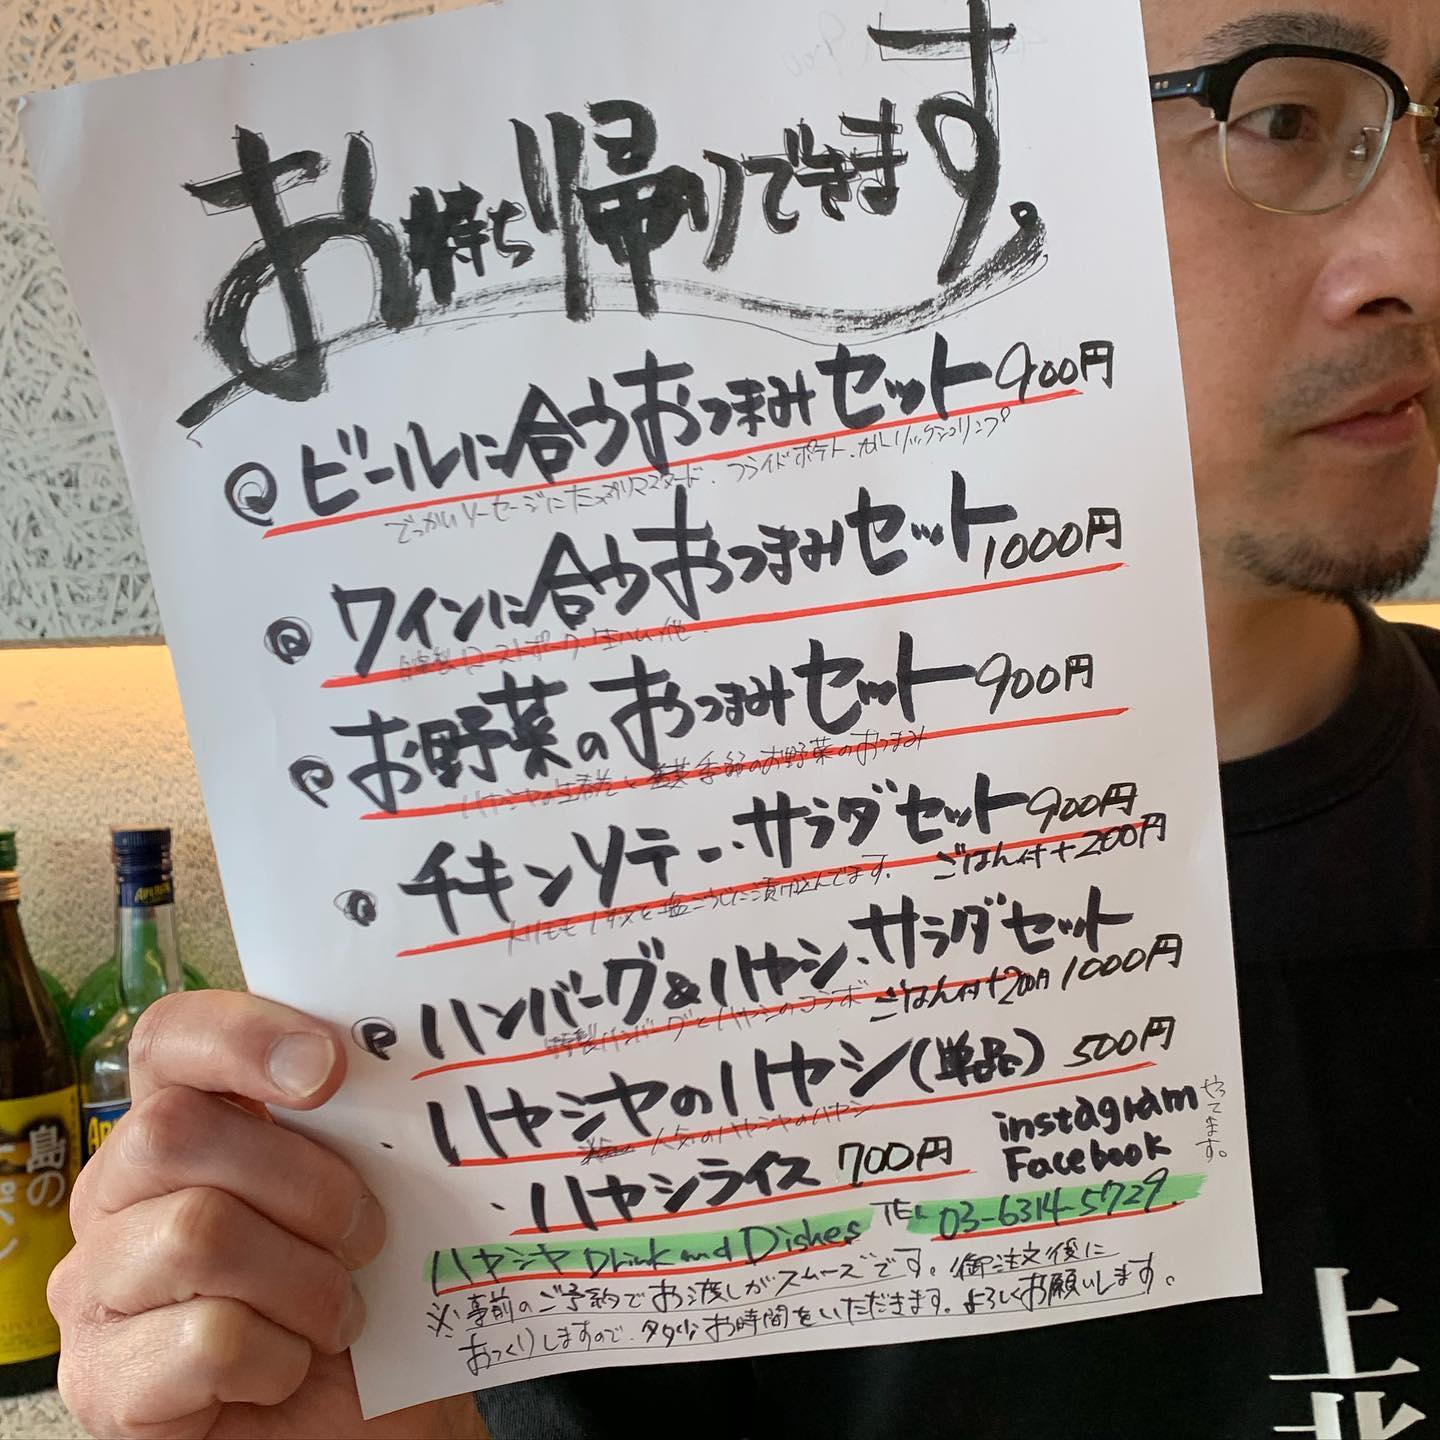 お持ち帰りできます。
ビールに合うおつまみセット 900円
でっかいソーセージにたっぷりマスタード、フライドポテト、ガーリックシュリンプ
ワインに合うおつまみセット 1000円
自家製ローストポーク 生ハム 他
お野菜のおつまみセット 900円
ハヤシヤの生春巻と 季節のお野菜のおつまみ
チキンソテー・サラダセット 900円
トリモモ 塩こうじに漬け込んでます。 ごはん付+200円
ハンバーグ&ハヤシ、サラダセット
特製ハンバーグとハヤシのコラボ ごはん付+200円 1000円
・ハヤシヤのハヤシ(単品) 500円
人気のハヤシヤのハヤシ
・ハヤシライス 700円
instagram
Facebook
やってます。
ハヤシヤ Drink and Dishes TEL 03-6314-5729
※事前のご予約でお渡しがスムーズです。御注文後に
おつくりしますので、多少お時間をいただきます。よろしくお願いします。
島の